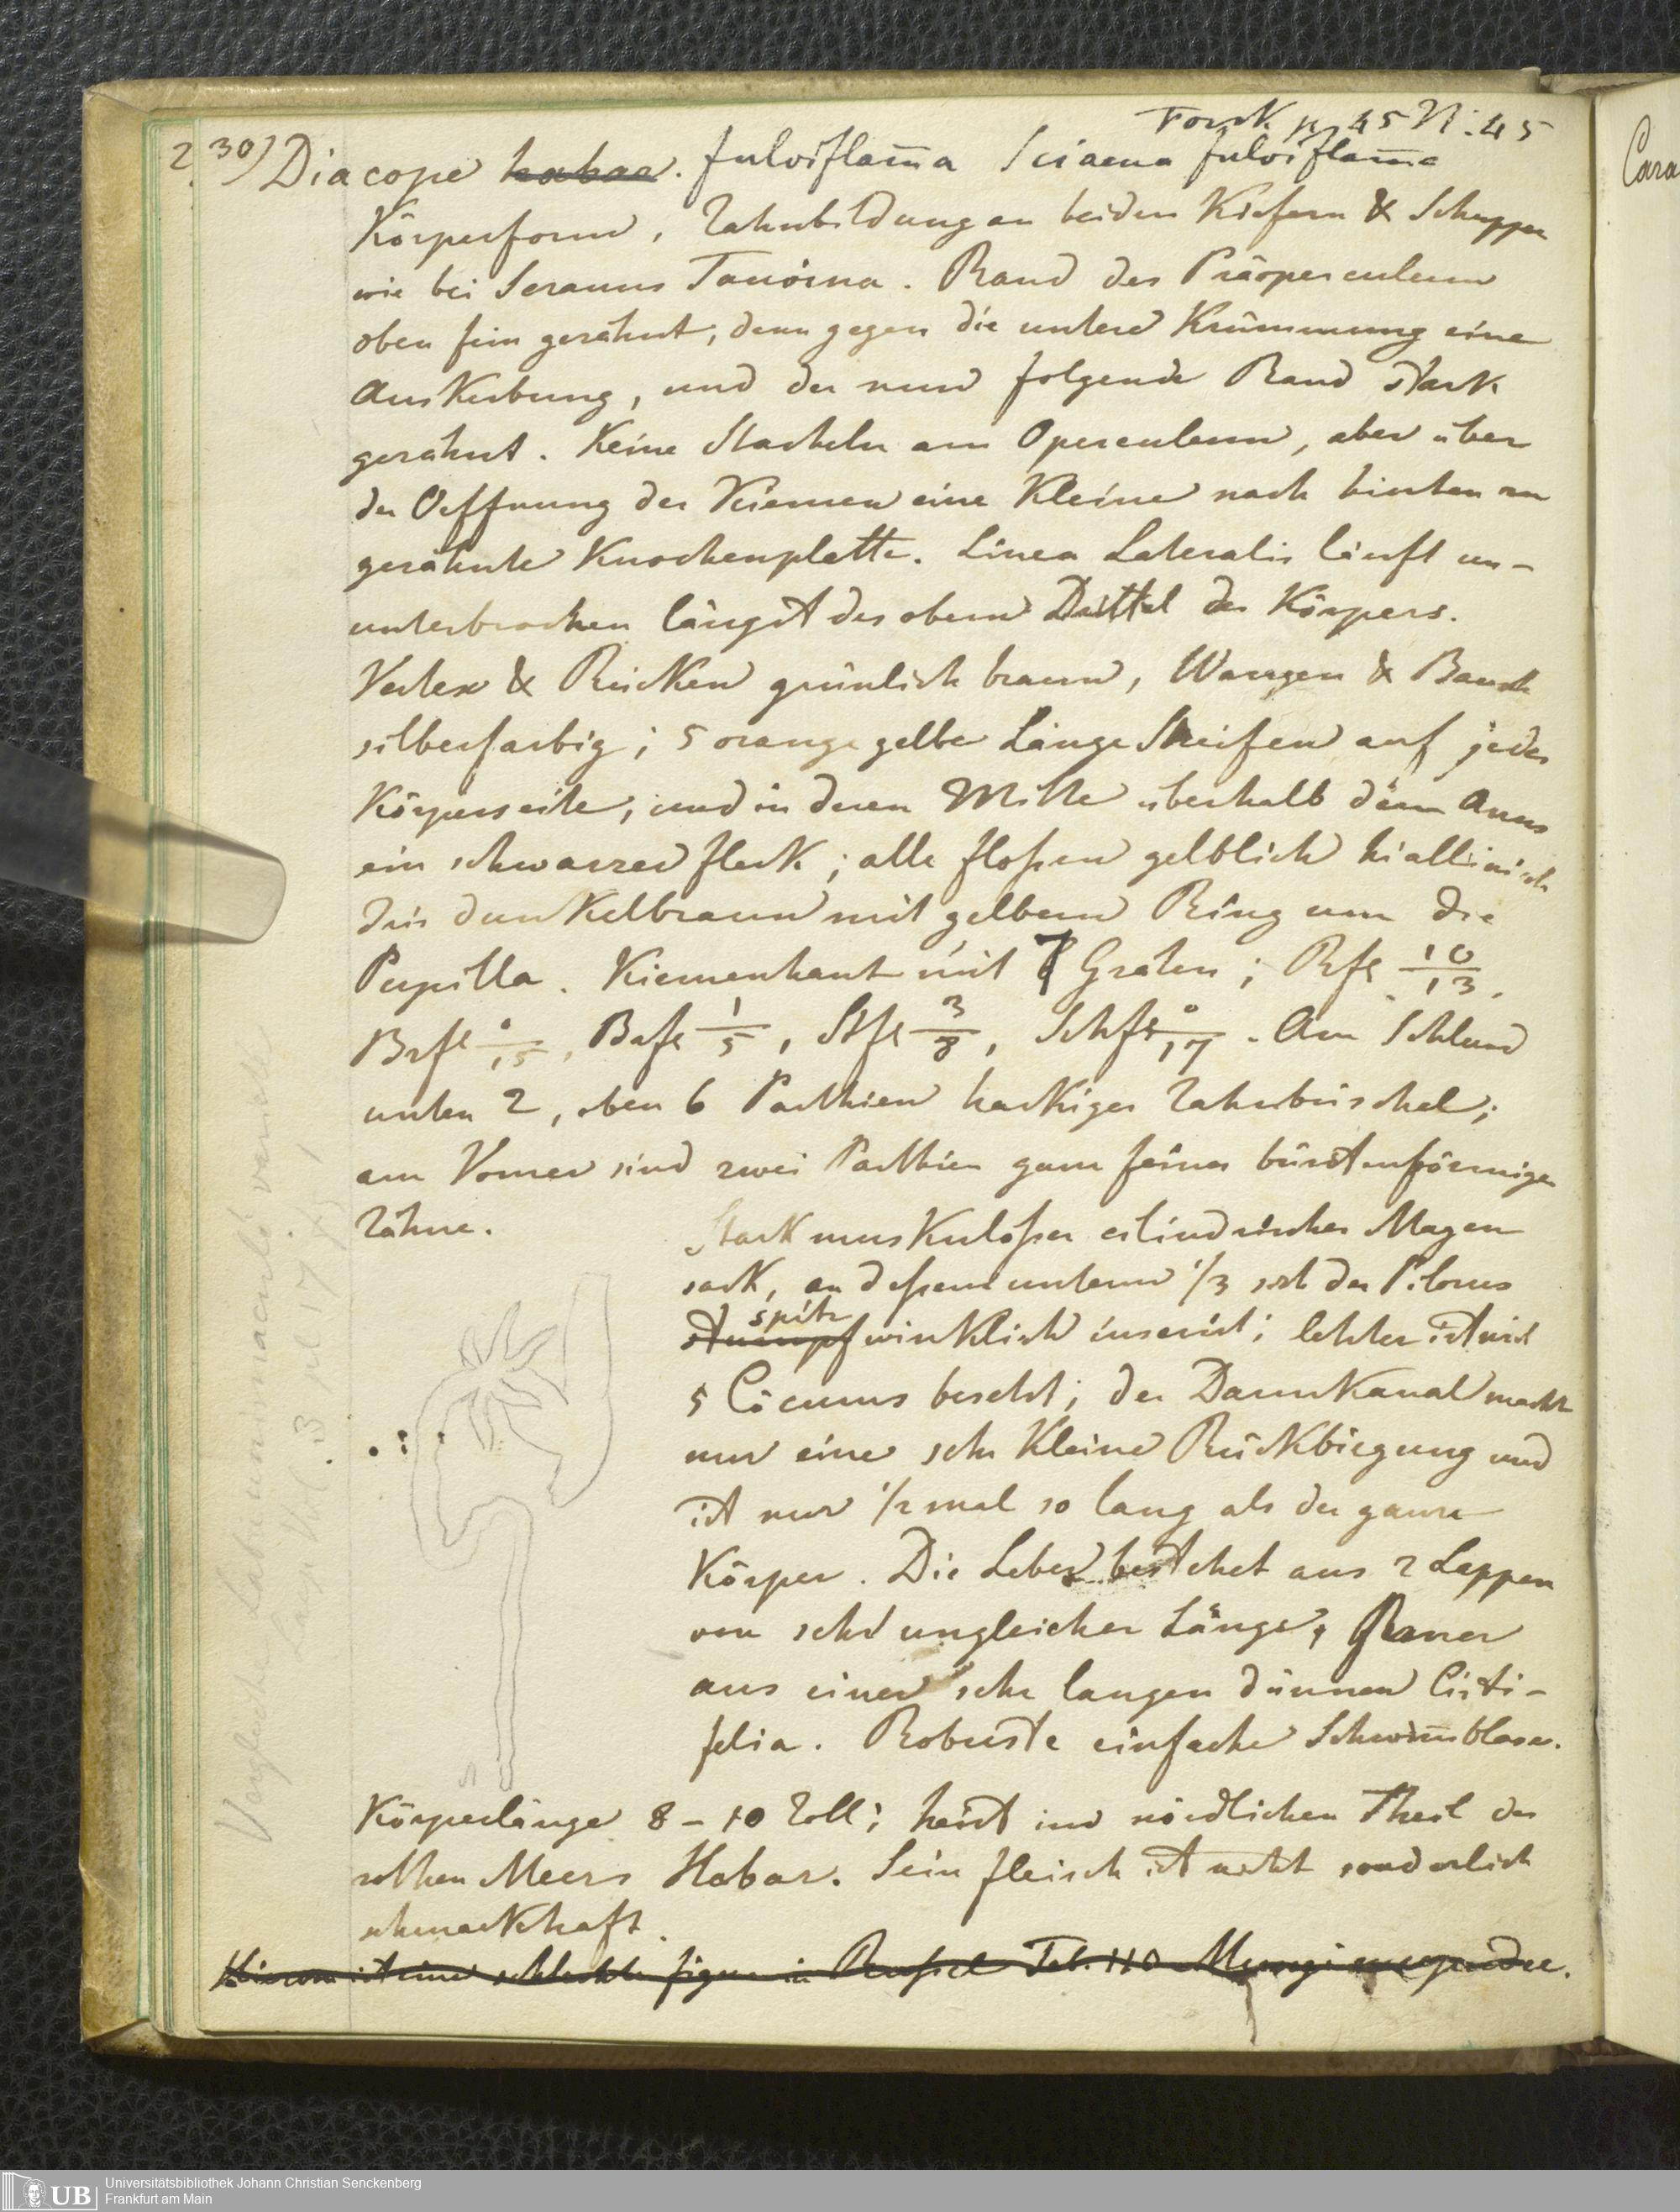 Forsk p 45 N: 45
2. 30) Diacope habar. fulviflam̅a Sciaena fulviflam̅a
Körperform, Zahnbildung an beiden Kiefern & Schuppen
wie bei Seranus Tauvina. Rand des Präoperculum
oben fein gezähnt, dann gegen die untere Krümmung eine
Auskerbung, und der nun folgende Rand stark
gezähnt. Keine Stacheln am Operculum, aber über
der Oeffnung der Kiemen eine kleine nach hinten zu
gezähnte Knochenplatte. Linea Lateralis läuft un-
unterbrochen längst des obern Drittel des Körpers.
Vertex & Rücken grünlich braun, Wangen & Bauch
silberfarbig; 5 orange gelbe Länge Streifen auf jeder
Körperseite, und in deren Mitte überhalb dem Anus
ein schwarzer Fleck; alle Floßen gelblich hiallinisch
Iris dunkelbraun mit gelbem Ring um die
Pupilla. Kiemenhaut mit 7 Gräten; Rfl 10/13.
Brfl 0/15, Bafl 1/5, Stfl 3/8, Schfl 0/17. Am Schlund
unten 2, oben 6 Parthien hackiger Zahnbüschel;
am Vomer sind zwei Parthien ganz feiner bürstenförmiger
Zähne.
Stark muskuloßer cilindrischer Magen
sack, an deßen unterm 1/3 sich der Pilorus
spitz
stumpf winklich inserirt; letzter ist mit
5 Cöcums besetzt; der Darmkanal macht
nur eine sehr kleine Rückbiegung und
ist nur 1/2 mal so lang als der ganze
Körper. Die Leber bestehet aus 2 Lappen
von sehr ungleicher Länge,
aus einer sehr langen dünnen Cisti-
felia. Robuste einfache Schwim̅blase.
Körperlänge 8 – 10 Zoll; heist im nördlichen Theil des
rothen Meers Habar. Sein Fleisch ist nicht sonderlich
schmackhaft.
Hievon ist eine schlechte Figur in Rußel Tab. 110
Vergleiche Labium maculé
Vol. 3 pl 17
Cara
Universitätsbibliothek Johann Christian Senckenberg
Frankfurt am Main
UB